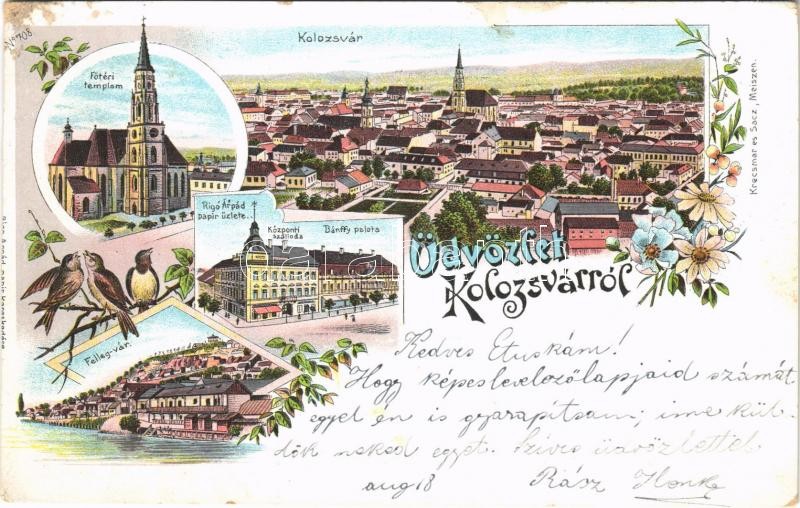 No 708.
Kolozsvár
Főtéri
templom
Rigó Árpád
papir üzlete.
Központi
szálloda
Bánffy palota
Üdvözlet
Kolozsvárról
Felleg-vár.
Krecsmar és Sacz, Meiszen.
Kedves Etuskám!
Hogy képes levelezőlapjaid számát
egyel én is gyarapítsam; ime kül-
dök neked egyet. Szives üdvözlettel
aug 18 Rász